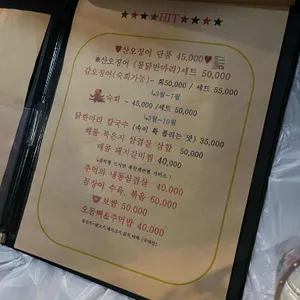 ★★★★HIT★★★★
♥산오징어 단품 45,000♥
산오징어 (통닭반마리)세트 50,000
갑오징어(숙회가능)- 회50,000 / 세트 55,000
숙회 - 45,000 /세트 50,000
닭한마리 칼국수 (속이 확 풀리는 맛) 35,000
묵은지 삼겹살 삼합 50,000
매콤 돼지갈비찜 40,000
추억의 냉동삼겹살 40,000
꼼장어 수육, 볶음 60,000
♡보쌈 50,000
오돌뼈&주먹밥 40,000